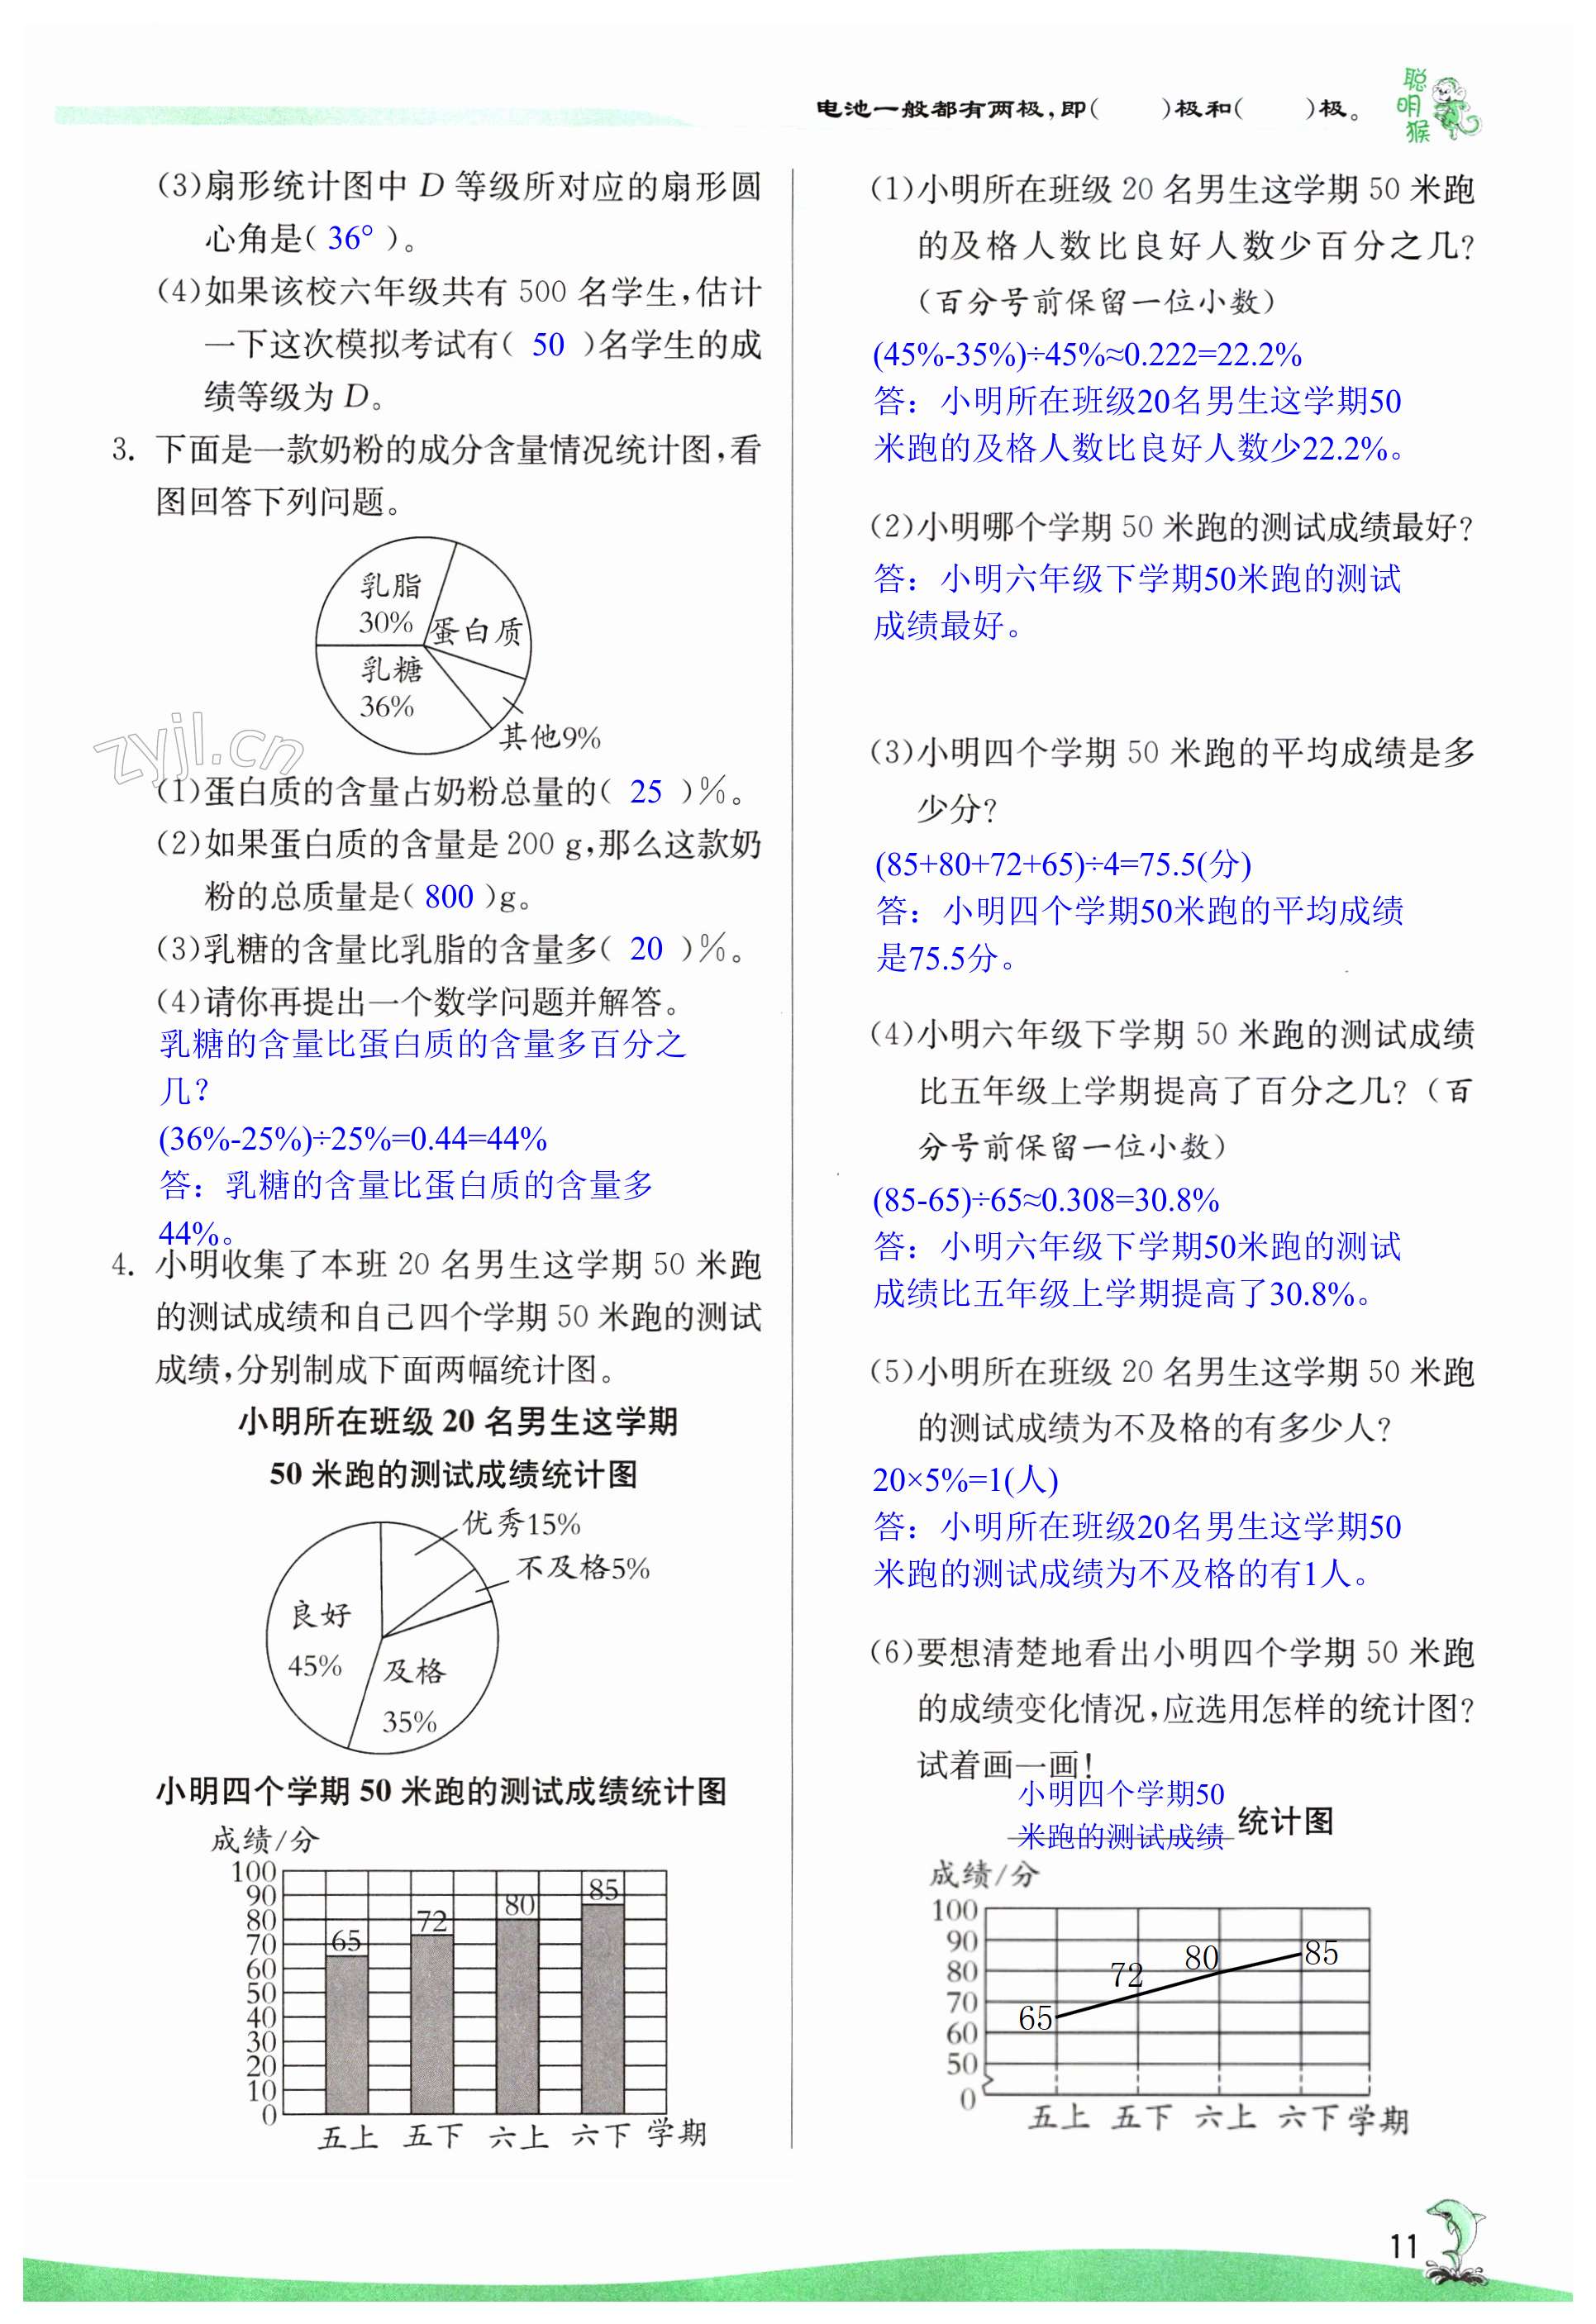 电池一般都有两极,即(　　)极和(　　)极。
聪明猴
(3)扇形统计图中 D 等级所对应的扇形圆
心角是( 36° )。
(4)如果该校六年级共有 500 名学生,估计
一下这次模拟考试有( 50 )名学生的成
绩等级为 D。
3. 下面是一款奶粉的成分含量情况统计图,看
图回答下列问题。
乳脂
30%
蛋白质
乳糖
36%
其他9%
zyjl.cn
(1)蛋白质的含量占奶粉总量的( 25 )%。
(2)如果蛋白质的含量是 200 g,那么这款奶
粉的总质量是( 800 )g。
(3)乳糖的含量比乳脂的含量多( 20 )%。
(4)请你再提出一个数学问题并解答。
乳糖的含量比蛋白质的含量多百分之
几?
(36%-25%)÷25%=0.44=44%
答：乳糖的含量比蛋白质的含量多
44%。
4. 小明收集了本班 20 名男生这学期 50 米跑
的测试成绩和自己四个学期 50 米跑的测试
成绩,分别制成下面两幅统计图。
小明所在班级 20 名男生这学期
50 米跑的测试成绩统计图
优秀15%
不及格5%
良好
45%
及格
35%
小明四个学期 50 米跑的测试成绩统计图
成绩/分
100
90
80
70
60
50
40
30
20
10
0
65
72
80
85
五上 五下 六上 六下 学期
(1)小明所在班级 20 名男生这学期 50 米跑
的及格人数比良好人数少百分之几?
(百分号前保留一位小数)
(45%-35%)÷45%≈0.222=22.2%
答：小明所在班级20名男生这学期50
米跑的及格人数比良好人数少22.2%。
(2)小明哪个学期 50 米跑的测试成绩最好?
答：小明六年级下学期50米跑的测试
成绩最好。
(3)小明四个学期 50 米跑的平均成绩是多
少分?
(85+80+72+65)÷4=75.5(分)
答：小明四个学期50米跑的平均成绩
是75.5分。
(4)小明六年级下学期 50 米跑的测试成绩
比五年级上学期提高了百分之几?(百
分号前保留一位小数)
(85-65)÷65≈0.308=30.8%
答：小明六年级下学期50米跑的测试
成绩比五年级上学期提高了30.8%。
(5)小明所在班级 20 名男生这学期 50 米跑
的测试成绩为不及格的有多少人?
20×5%=1(人)
答：小明所在班级20名男生这学期50
米跑的测试成绩为不及格的有1人。
(6)要想清楚地看出小明四个学期 50 米跑
的成绩变化情况,应选用怎样的统计图?
试着画一画!
小明四个学期50
米跑的测试成绩 统计图
成绩/分
100
90
80
70
60
50
0
65
72
80
85
五上 五下 六上 六下 学期
11